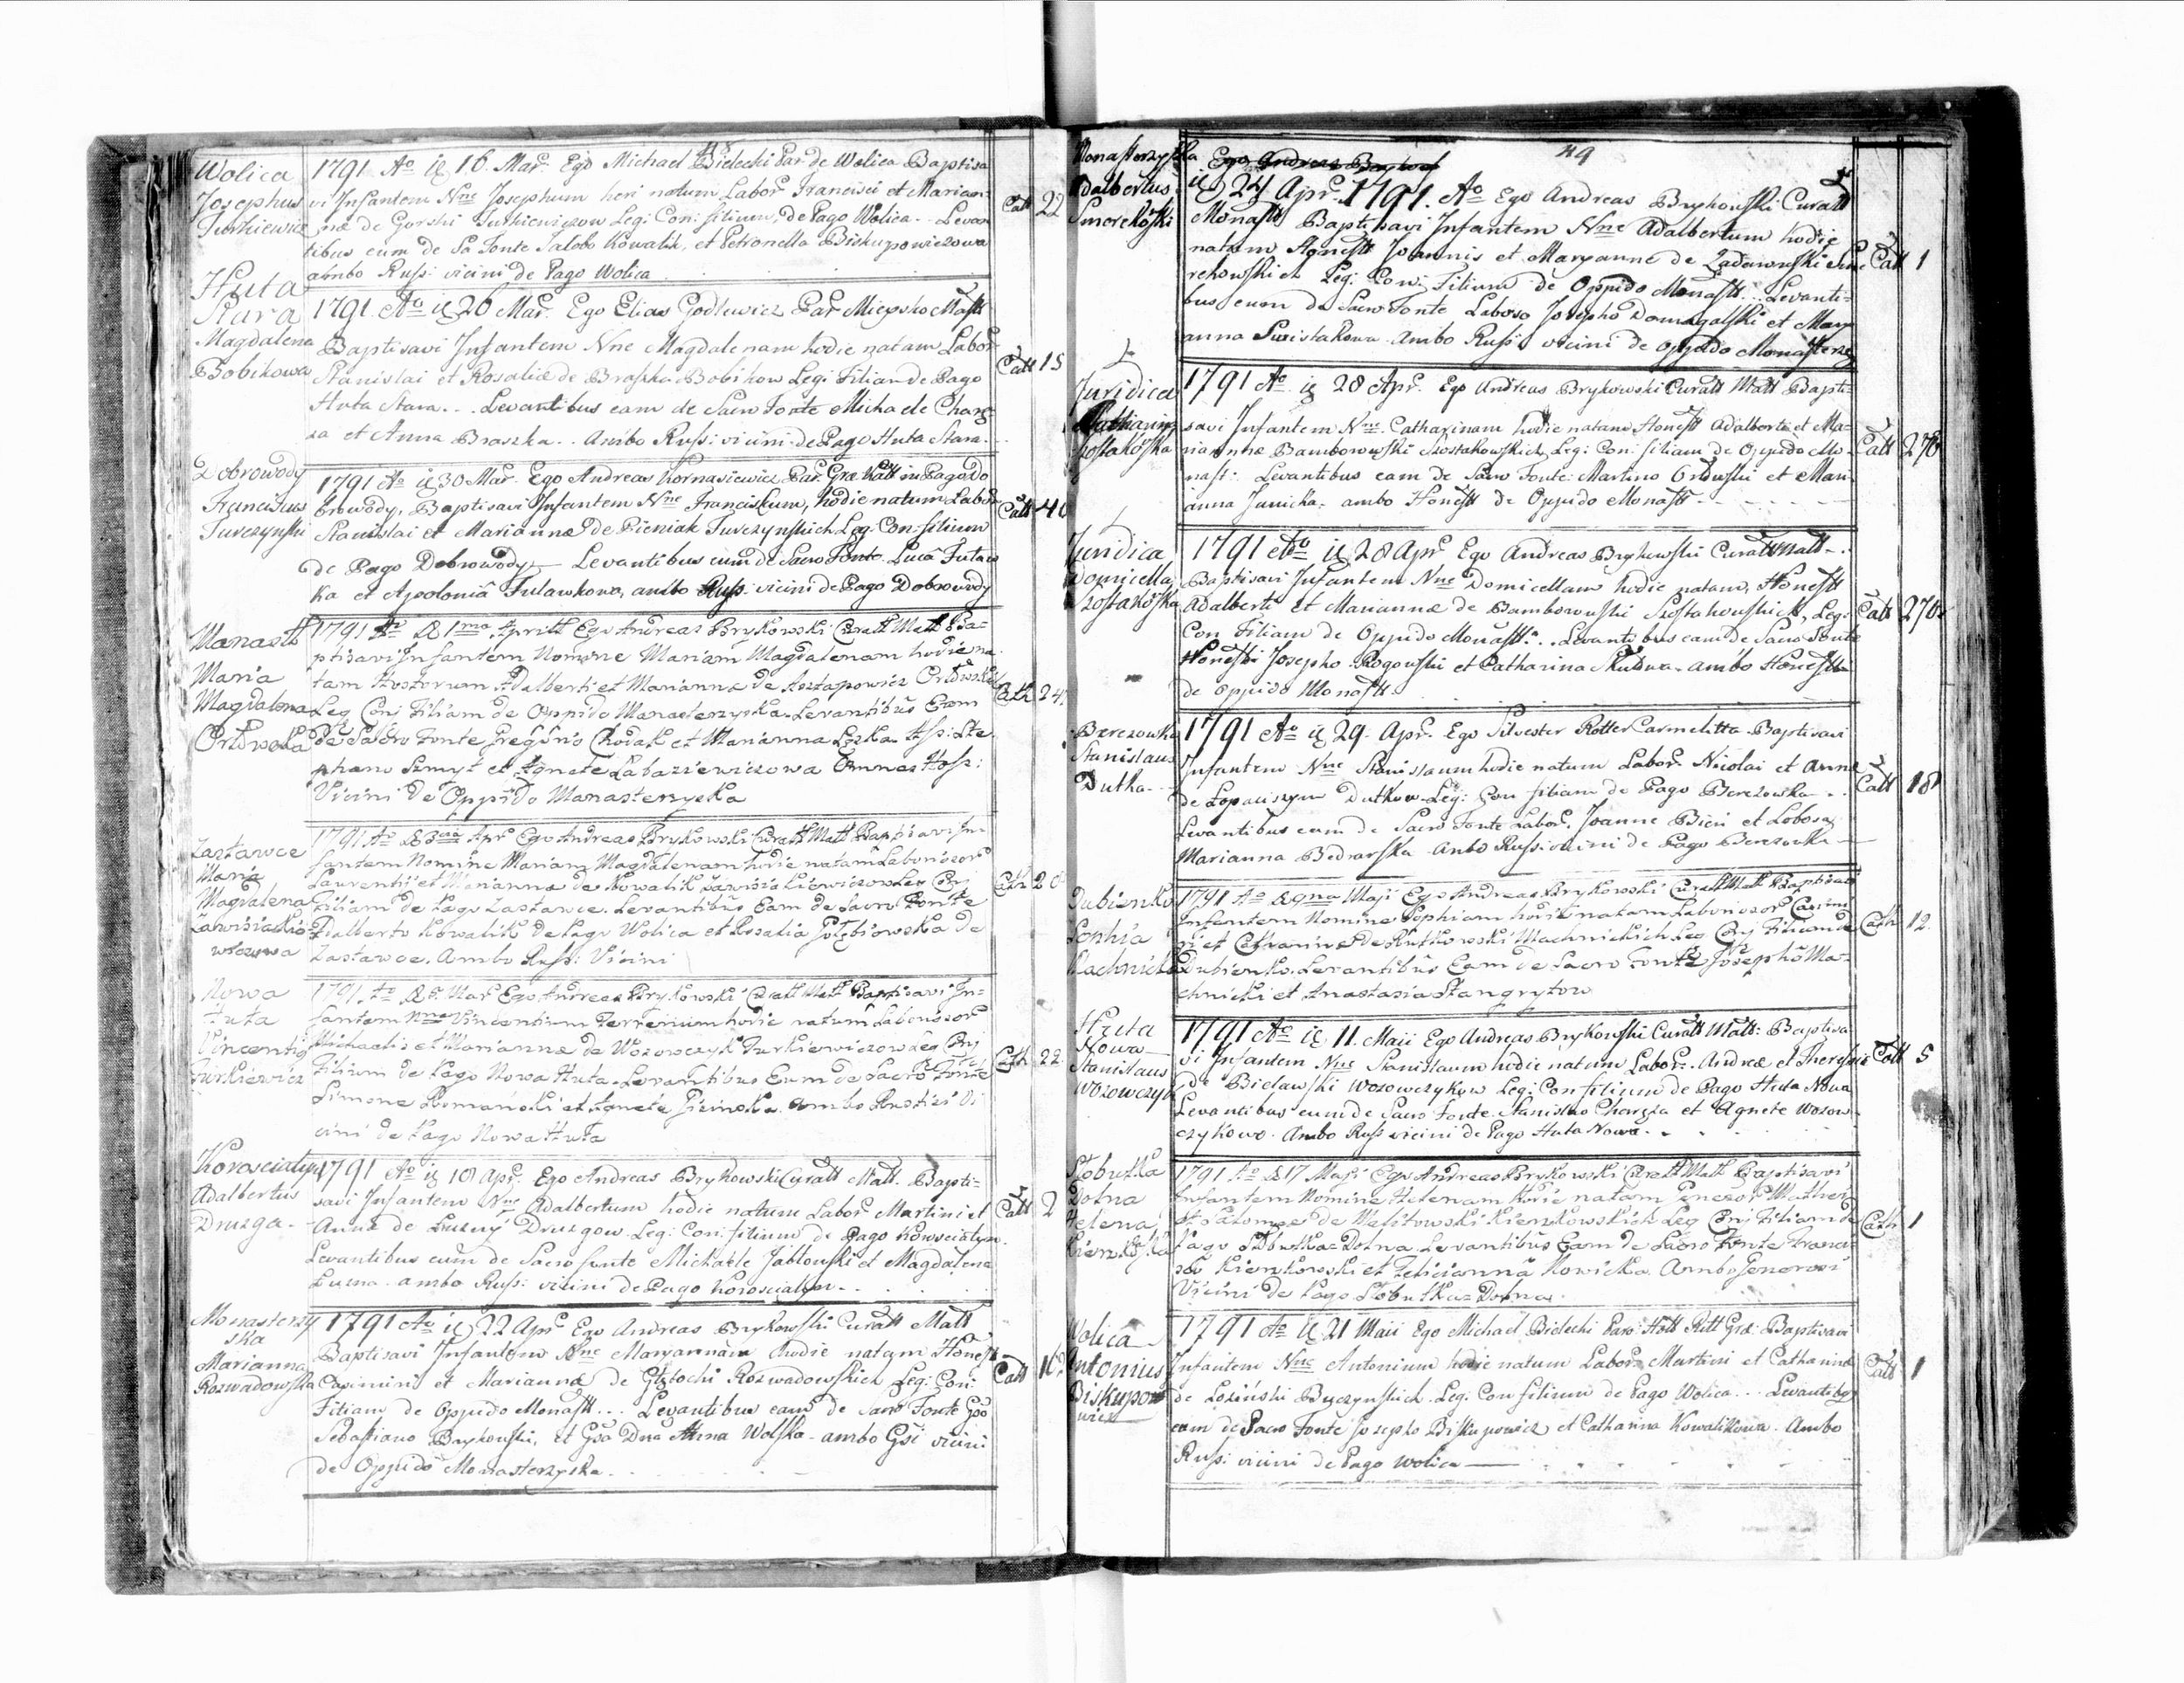 48
Wolica
Josephus
Jurkiewicz
1791 Ao ię 16. Mar. Ego Michael Bielecki Par de Wolica Baptisa
vi Infantem Nne Josephum heri natum Labor Francisci et Marian
næ de Gorski Jurkiewiczow Legi: Con: filium, de Pago Wolica.. Levan
tibus eum de Sa Fonte Jakobo Kowalik, et Petronella Biskupowiczowa
ambo Russ: vicini de Pago Wolica
Catt 22
Huta
Stara
Magdalena
Bobikowa
1791. Ao ię 26 Mar. Ego Elias Godlewicz Par
Baptisavi Infantem Nne Magdalenam hodie natam Labor
Stanislai et Rosaliæ de Braszka Bobikow Legi: Filiam de Pago
Huta Stara... Levantibus eam de Sacro Fonte Michaele Charę
za et Anna Braszka.. Ambo Russ: vicini de Pago Huta Stara.
Catt 15
Dobrowody
Franciscus
Turczynski
1791 Ao ię 30 Mar. Ego Andreas Kornasiewicz Par. Græ Catt in Pago Do
browody, Baptisavi Infantem Nne Franciskum, hodie natum Labor
Stanislai et Mariannæ de Pieniak Turczynskich Leg: Con: filium
de Pago Dobrowody — Levantibus eum de Sacro Fonte Luca Tutaw
ka et Apolonia Tulawkowa, ambo Russ: vicini de Pago Dobrowody
Catt 40
Monastt
Maria
Magdalena
Orłowska
1791 Ao D 1ma Aprill Ego Andreas Brykowski Curatt Matt Ba=
ptisavi Infantem Nomine Mariam Magdalenam hodie na
tam Adalberti et Mariannæ de Asztapowicz
Leg Conj Filiam de Oppido Manasterzyska. Levantibus Eam
de Sacro Fonte Gregorio Chodak et Marianna Ass: Ste
phano Szmyt et Agnete Łabaziewiczowa Omnes Hoss:
Vicini de Oppido Manasterzyska
Cath 24
Zastawce
Maria
Magdalena
1791 Ao D 3tia Apr Ego Andreas Brykowski Curatt Matt Baptisavi In
fantem Nomine Mariam Magdalenam hodie natam Laboriosor
Laurentii et Mariannæ de Kowalik Leg Conj
Filiam de Pago Zastawce. Levantibus Eam de Sacro Fonte
Adalberto Kowalik de Pago Wolica et Rosalia Gołębiowska de
Zastawce. Ambo Russ: Vicini
Cath
Nowa
Huta
Vincentig
Turkiewicz
1791 Ao Ego Andreas Brykowski Curatt Matt Baptisavi In=
fantem Nne Vincentium Ferrerium hodie natum Laboriosor
Michaelis et Mariannæ de Wozowczyk Turkiewiczow Leg Conj
Filium de Pago Nowa Huta. Levantibus Eum de Sacro Fonte
Simone Romanski et Agnete ambo Rustici Vi
cini de Pago Nowa Huta
Cath 22
Korosciatyn
Adalbertus
Druzga.
1791 Ao ię 18 Apr. Ego Andreas Brykowski Curatt Matt. Bapti=
savi Infantem Nne Adalbertum hodie natum Labor Martini et
Annæ de Druzgow Leg: Con: filium de Pago Korosciatyn.
Levantibus eum de Sacro fonte Michaele Jabłonski et Magdalena
ambo Russ: vicini de Pago Korosciatyn..
Catt 2
Monasterzy
ska
Marianna
Rozwadowska
1791 Ao ię 22 Apr Ego Andreas Brykowski Curatt Matt
Baptisavi Infantem Nne Maryannam hodie natam Honest
Casimiri et Mariannæ de Głębochi Rozwadowskich Leg: Con:
Filiam de Oppido Monastt... Levantibus eam de Sacro Fonte Gso
Sebastiano Brykowski, et Gsa Dna Anna Wolska. ambo Gsi vicini
de Oppido Monasterzyska.
Catt 16
49
Monasterzyska
Adalbertus
Smerekoski
Ego Andreas Brykows
ię 24 Apr. 1791. Ao Ego Andreas Brykowski Curatt
Monastt Baptisavi Infantem Nne Adalbertum hodie
natum Honestt Joannis et Maryannæ de Zadawnski Sme
rekowski et Leg: Con: Filium de Oppido Monastt... Levanti=
bus eum de Sacro Fonte Laboso Josepho Domagalski et Mary
anna Swistakowa Ambo Russi vicini de oppido Monasterzy
Catt 1
Juridica
Catharina
Szostakoska
1791 Ao ię 28 Apr. Ego Andreas Brykowski Curatt Matt Bapti=
savi Infantem Nne. Catharinam hodie natam Honestt Adalberti et Ma=
riannæ Bamborowski Szostakowskich, Leg: Con: filiam de Oppido Mo=
nast: Levantibus eam de Sacro Fonte Martino Ordowski et Mari
anna Janicka. ambo Honestt de Oppido Monastt
Catt 270
Juridica
Domicella
Szostakoska
1791 Ao ię 28 Apr. Ego Andreas Brykowski Curatt Matt.
Baptisavi Infantem Nne Domicellam hodie natam, Honestt
Adalberti et Mariannæ de Bamborowski Szostakowskich, Leg:
Con: Filiam de Oppido Monastt.. Levantibus eam de Sacro Fonte
Honesti Josepho Rogowski et Catharina ambo Honestt
de oppido Monastt
Catt 270
Berezowka
Stanislaus
Dutka
1791 Ao ię 29. Apr. Ego Silvester Rotter Carmelitta Baptisavi
Infantem Nne Stanislaum hodie natum Labor Nicolai et Annæ
de Lopaciszyn Dutkow Leg: Con filium de Pago Berezowka..
Levantibus eum de Sacro Fonte Labor. Joanne Bieri et Lobosa
Marianna Bednarska Ambo Russi vicini de Pago Berezowka
Catt 18
Dubienko
Sophia
Machnicka
1791 Ao Maji Ego Andreas Brykowski Curatt Matt Baptisavi
Infantem Nomine Sophiam hodie natam Laboriosor Casimi
ri et Catharinæ de Rutkowski Machnickich Leg Conj Filiam de
Dubienko. Levantibus Eam de Sacro Fonte Josepho Ma=
chnicki et Anastasia Stangrytow
Cath 12
Huta
Nowa
Stanislaus
Wozowczyk
1791 Ao ię 11. Maii Ego Andreas Brykowski Curatt Matt: Baptisa
vi Infantem Nne Stanislaum hodie natum Labor. Andreæ et Theresiæ
de Bielawski Wozowczykow Leg: Con filium de Pago Huta Nowa
Levantibus eum de Sacro Fonte. Stanislao Charęza et Agnete Wozow
czykowa. Ambo Russ vicini de Pago Huta Nowa.
Catt 5
Słobutka
Dolna
Helena
Kienkoska
1791 Ao D 17 Maji Ego Andreas Brykowski Curatt Matt Baptisavi
Infantem Nomine Helenam hodie natam Generor Mathei
et Salomee de Kienkowskich Leg Conj Filiam de
Pago Słobutka=Dolna. Levantibus Eam de Sacro Fonte Franci=
sco Kienkowski et Felicianna Nowicka. Ambo Generosi
Vicini de Pago Słobutka=Dolna.
Cath 1
Wolica
Antonius
Biskupow
wicz
1791 Ao ię 21 Maii Ego Michael Bielecki Paro: Ritt Græ: Baptisavi
Infantem Nne Antonium hodie natum Labor Martini et Catharinæ
de Loziński Buczynskich Leg: Con filium de Pago Wolica... Levantibg
eum de Sacro Fonte Josepho Biskupowicz et Catharina Kowalikowa. Ambo
Russ: vicini de Pago Wolica
Catt 1